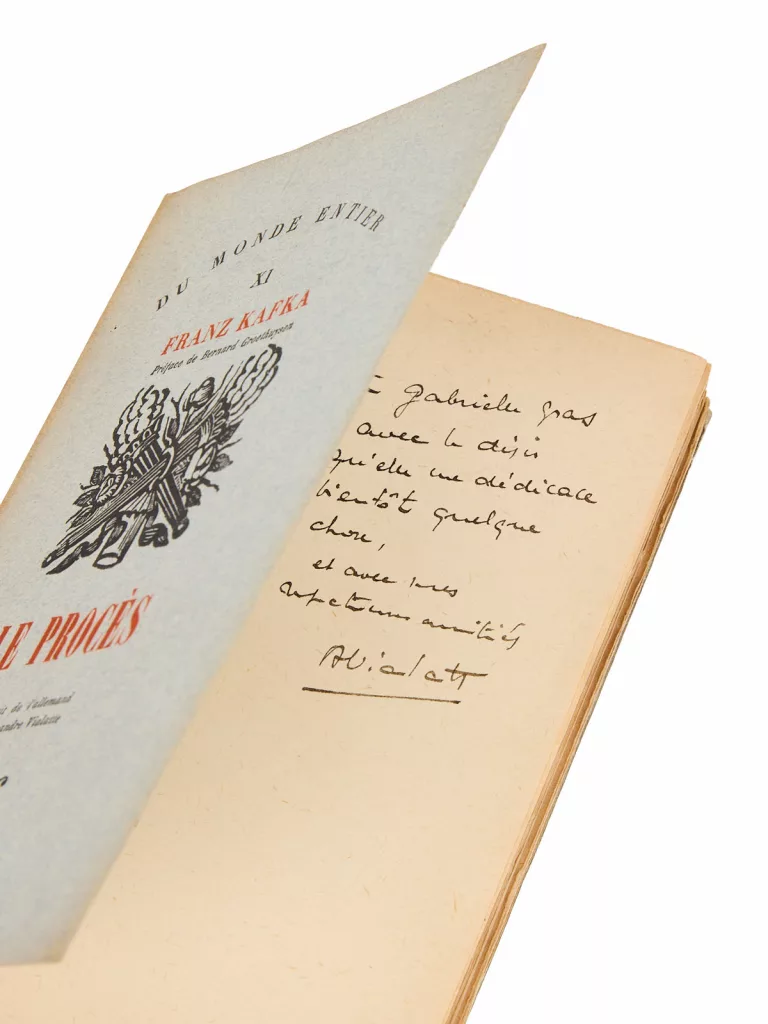 DU MONDE ENTIER
XI
FRANZ KAFKA
Préface de Bernard Groethuysen
LE PROCÉS
de l'allemand
Vialatte
à gabrielle gras
avec le désir
qu'elle me dédicace
bientôt quelque
chose,
et avec mes
amitiés
AVialatte